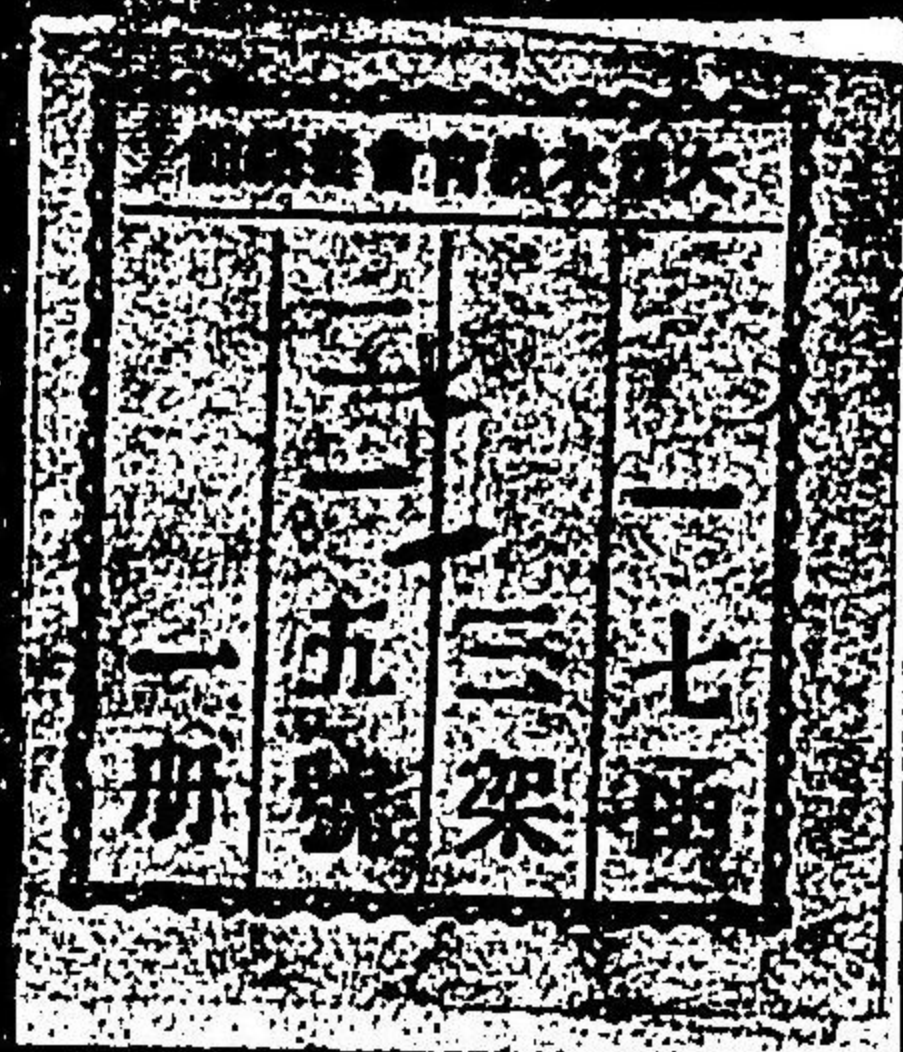 大日本教育會書籍館
一七函
三架
一五號
一册